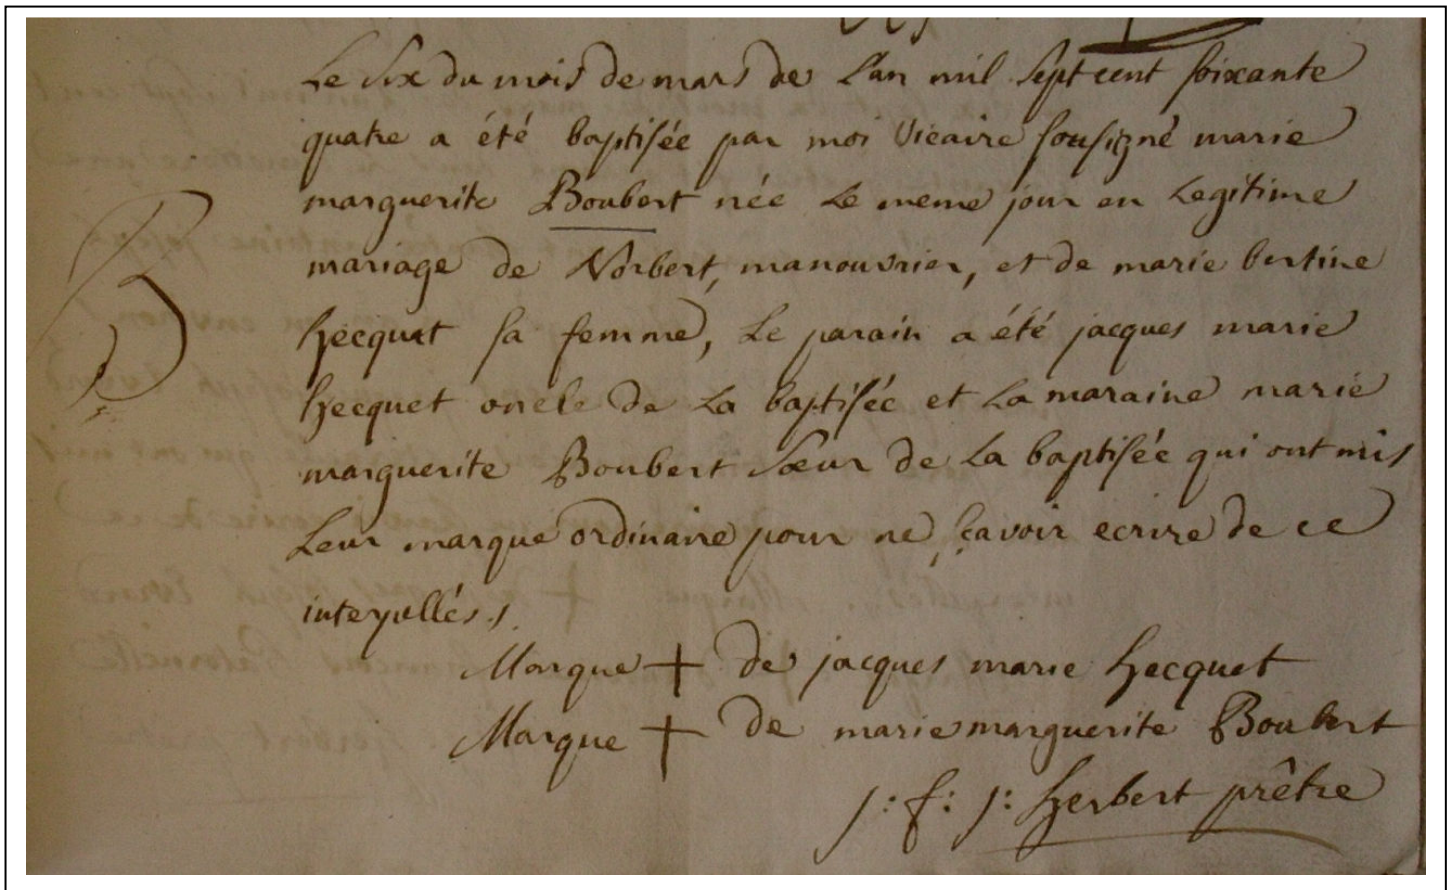 Le six du mois de mars de l'an mil sept cent soixante
quatre a été baptisée par moi Vicaire sousigné marie
marguerite Boubert née le meme jour en legitime
mariage de Norbert, manouvrier, et de marie bertine
hecquet sa femme, Le parain a été jacques marie
hecquet oncle de La baptisée et La maraine marie
marguerite Boubert sœur de La baptisée qui ont mis
Leur marque ordinaire pour ne sçavoir ecrire de ce
interpellés.
B
Marque + de jacques marie hecquet
Marque + de marie marguerite Boubert
j: f: j: herbert prêtre